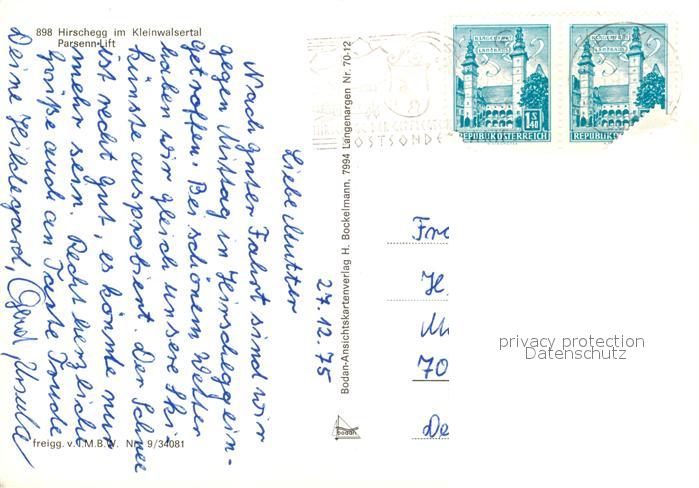 898 Hirschegg im Kleinwalsertal
Parsenn-Lift
27.12.75
Liebe Mutter
Nach guter Fahrt sind wir
gegen Mittag in Hirschegg ein-
getroffen. Bei schönem Wetter
haben wir gleich unsere Ski
künste ausprobiert. Der Schnee
ist recht gut, es könnte nur
mehr sein. Recht herzliche
Grüße auch an Tante Trude
Deine Hildegard, Gerd, Ursula
freigg. v. I.M.B.W. Nr. 9/34081
Bodan-Ansichtskartenverlag H. Bockelmann, 7994 Langenargen Nr. 70-12
bodan
KLAGENFURT
LANDHAUS
1 S 40
REPUBLIK ÖSTERREICH
KLAGENFURT
LANDHAUS
REPUBLIK
POSTSONDE
Fr
H.
M
70
De
privacy protection
Datenschutz